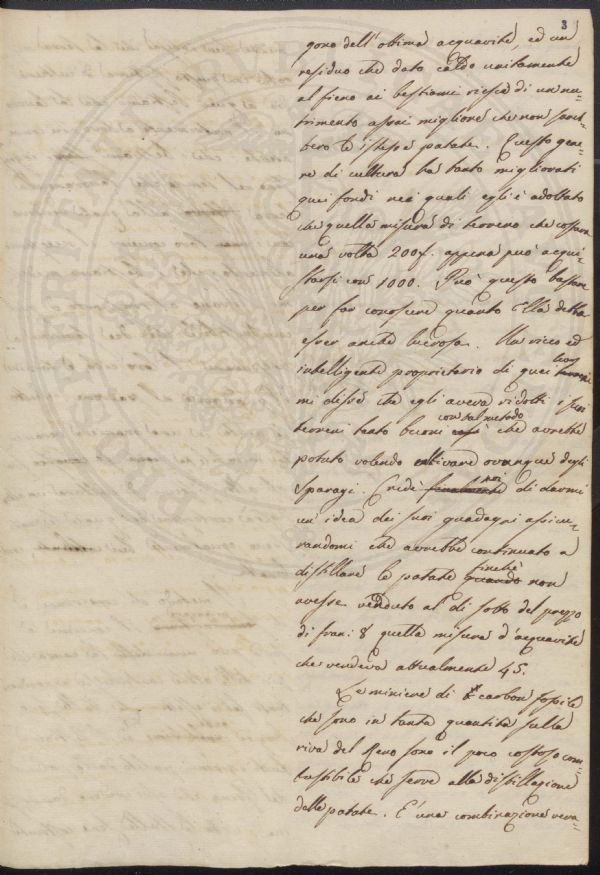 3
gono dell'ottima acquavite, ed un
residuo che dato caldo unitamente
al fieno ai bestiami riesce di un nu-
trimento assai migliore che non sareb-
bero le istesse patate. Questo gene-
re di cultura ha tanto migliorati
quei fondi nei quali egli è adottato
che quella misura di terreno che costava
una volta 200f. appena può acqui-
starsi con 1000. Può questo bastare
per far conoscere quanto ella debba
esser anche lucrosa. Un ricco ed
intelligente proprietario di quei terreni
mi disse che egli aveva ridotti i suoi
terreni tanto buoni con tal metodo che avrebbe
potuto volendo coltivare ovunque degli
Sparagi. Credè poi di darmi
un'idea dei suoi guadagni assicu-
randomi che avrebbe continuato a
distillare le patate finchè non
avesse venduto al di sotto del prezzo
di fran: 8 quella misura d'acquavite
che vendeva attualmente 45.
Le miniere di carbon fossile
che sono in tanta quantità sulla
riva del Reno sono il poco costoso com-
bustibile che serve alla distillazione
delle patate. E' una combinazione vera-